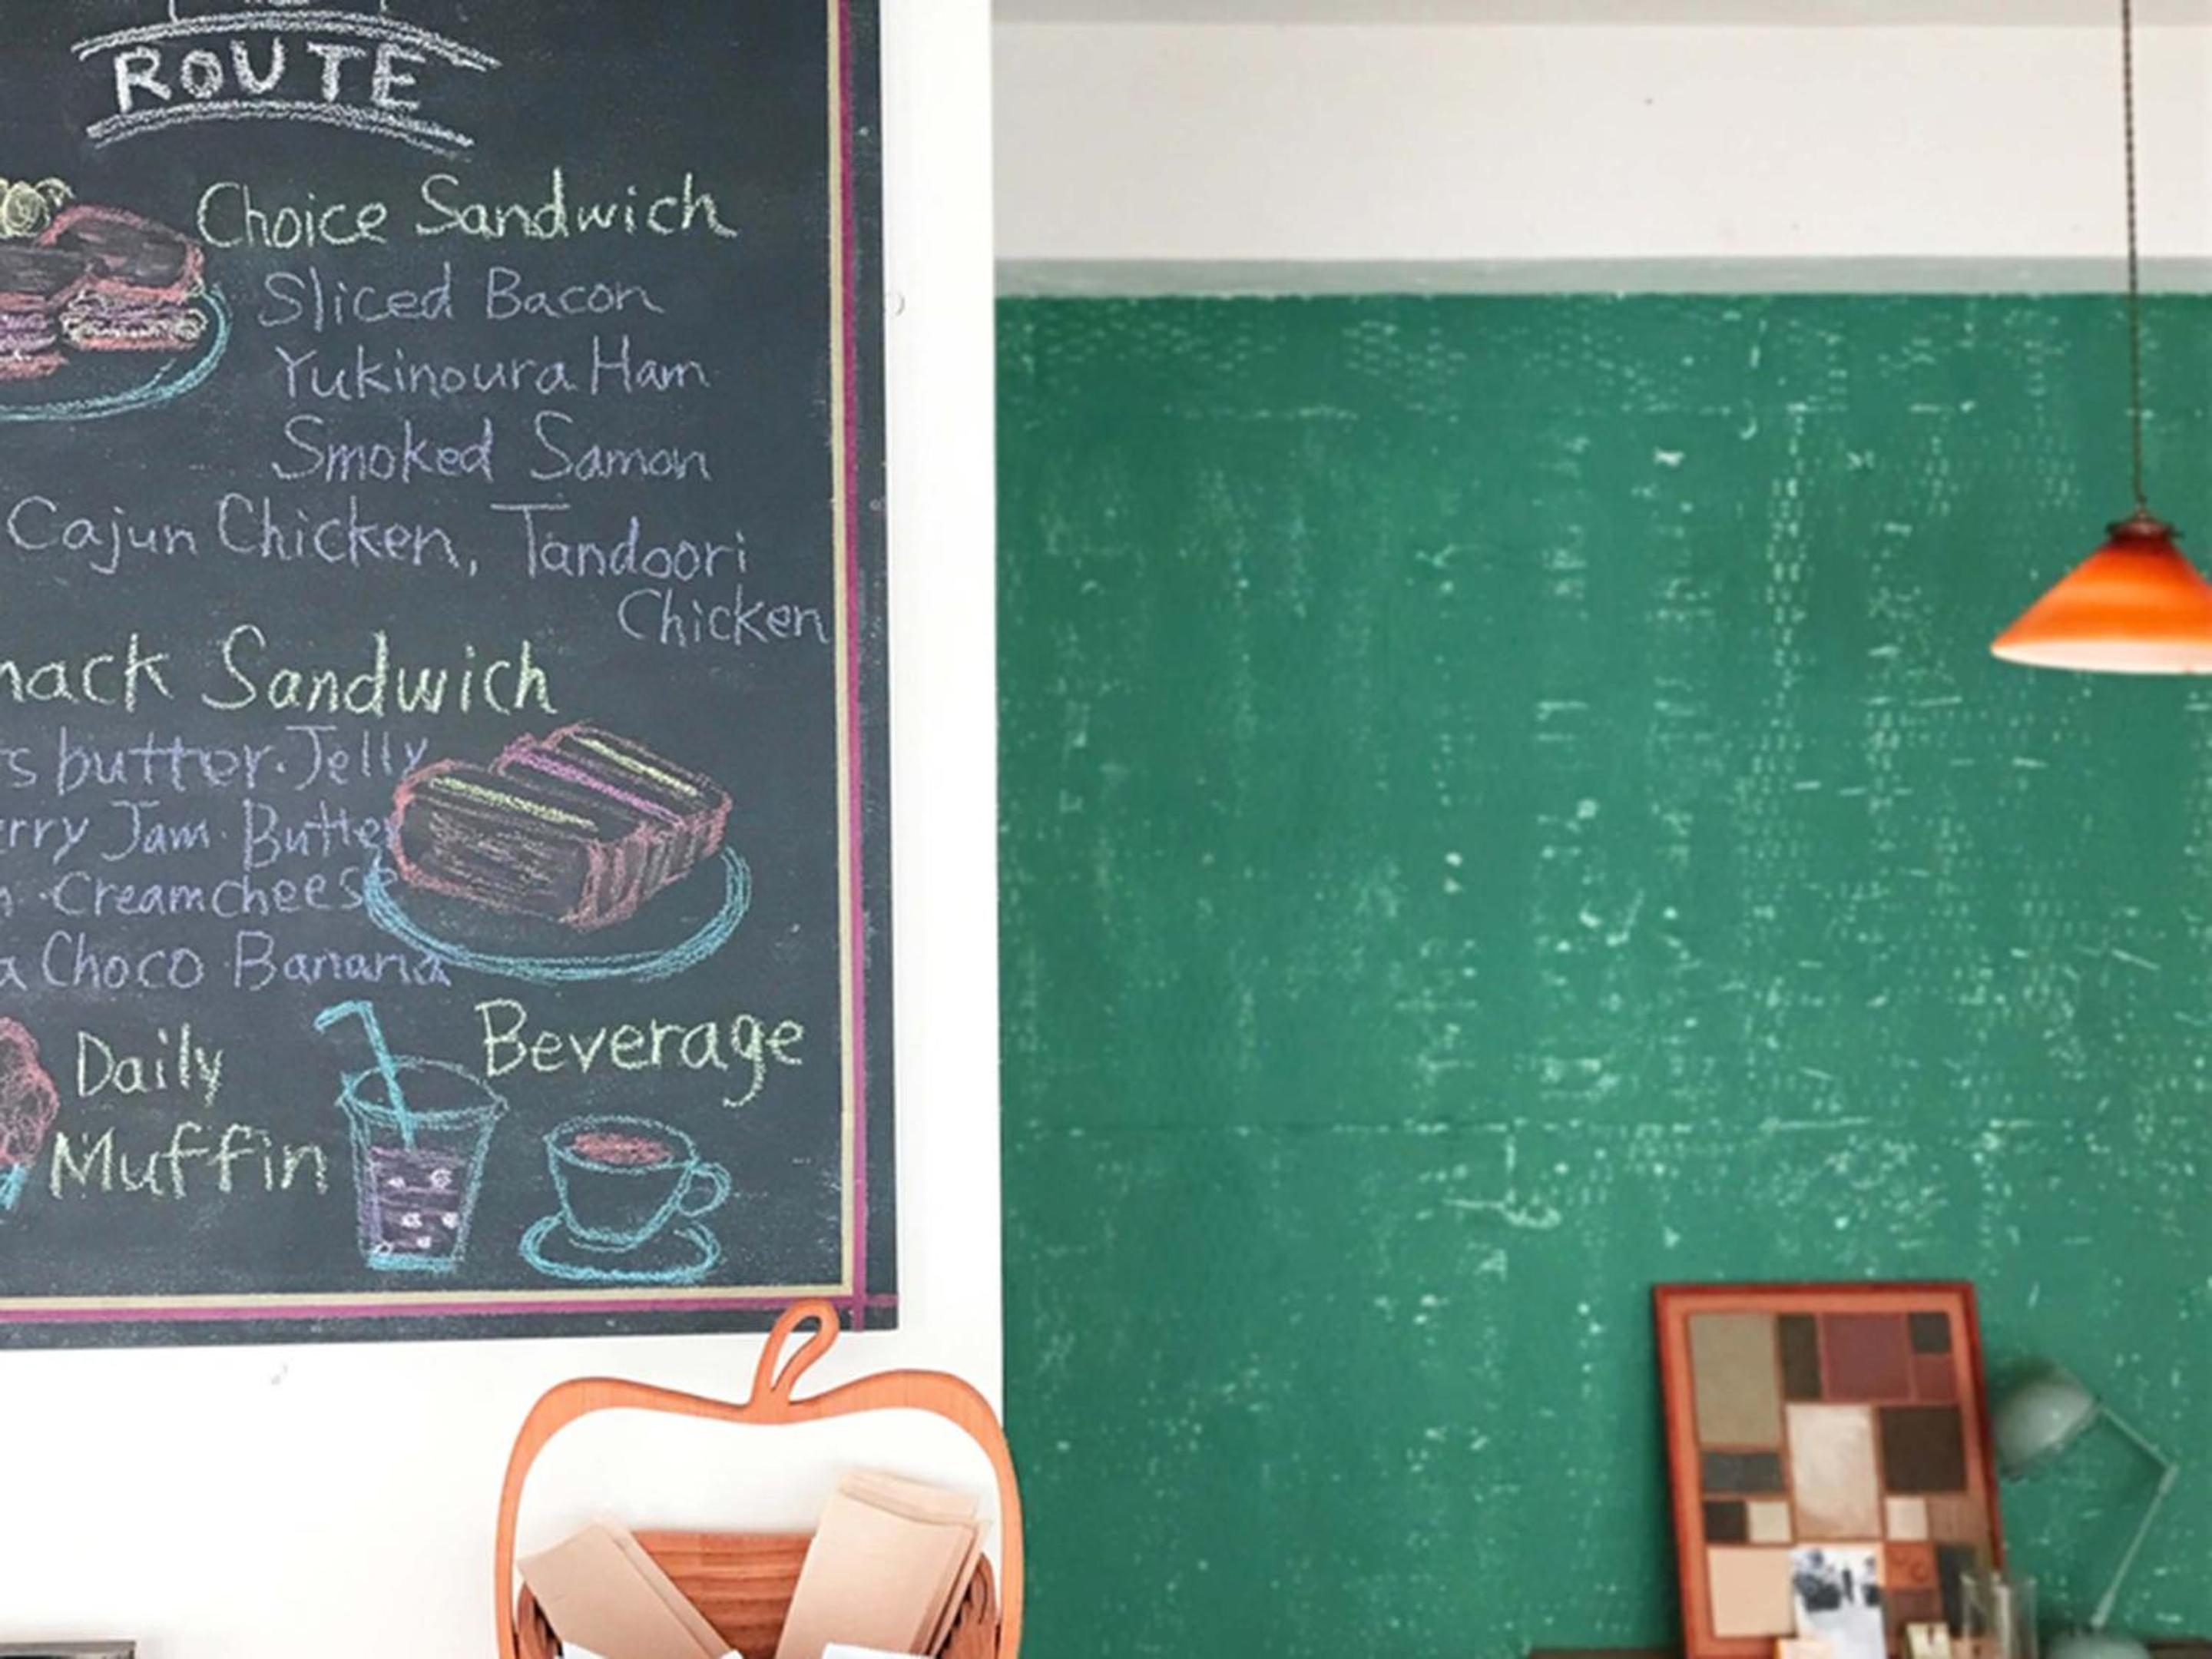 ROUTE
Choice Sandwich
Sliced Bacon
Yukinoura Ham
Smoked Samon
Cajun Chicken, Tandoori
Chicken
nack Sandwich
s butter · Jelly
rry Jam · Butter
· Creamcheese
a Choco · Banana
Daily
Muffin
Beverage